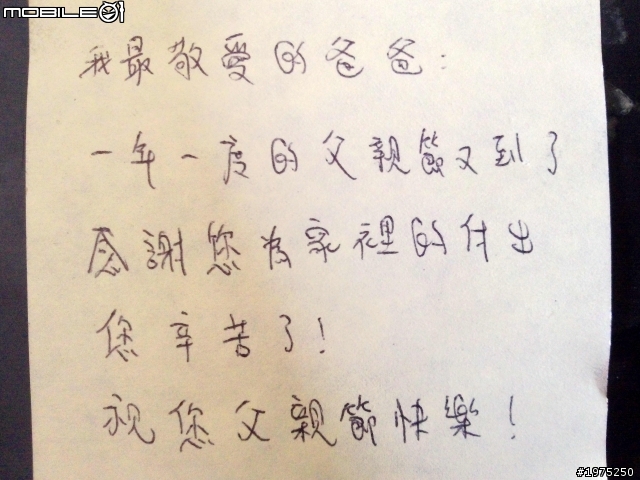 MOBILE01
我最敬愛的爸爸:
一年一度的父親節又到了
感謝您為家裡的付出
您辛苦了!
祝您父親節快樂!
#1975250